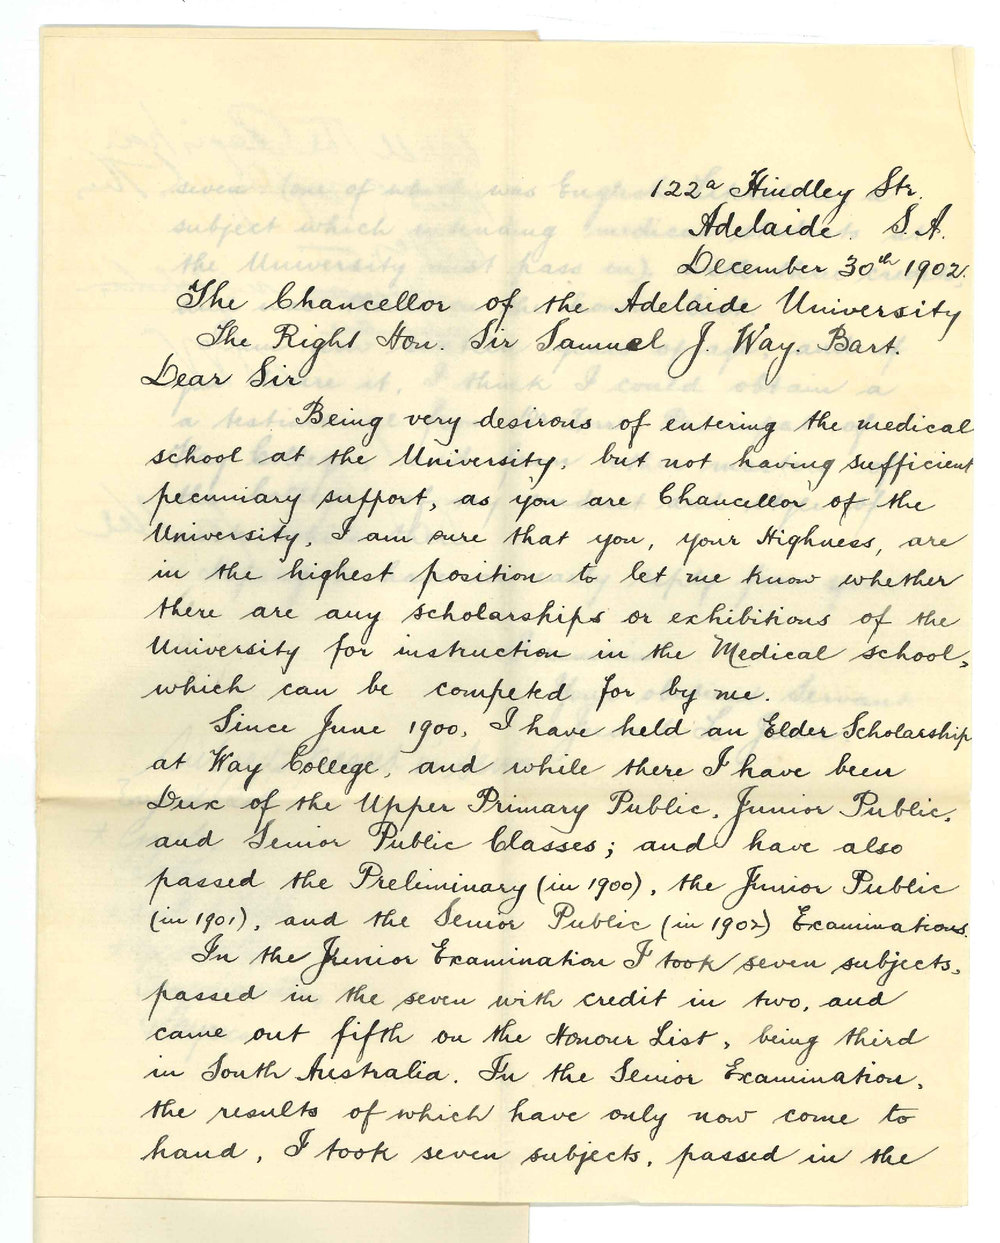 122a Hindley Str.
Adelaide. S.A.
December 30th 1902.
The Chancellor of the Adelaide University
The Right Hon. Sir Samuel J. Way. Bart.
Dear Sir
Being very desirous of entering the medical
school at the University, but not having sufficient
pecuniary support, as you are Chancellor of the
University, I am sure that you, your Highness, are
in the highest position to let me know whether
there are any scholarships or exhibitions of the
University for instruction in the Medical school,
which can be competed for by me.
Since June 1900, I have held an Elder Scholarship
at Way College, and while there I have been
Dux of the Upper Primary Public, Junior Public,
and Senior Public Classes; and have also
passed the Preliminary (in 1900), the Junior Public
(in 1901), and the Senior Public (in 1902) Examinations.
In the Junior Examination I took seven subjects,
passed in the seven with credit in two, and
came out fifth on the Honour List, being third
in South Australia. In the Senior Examination,
the results of which have only now come to
hand, I took seven subjects, passed in the